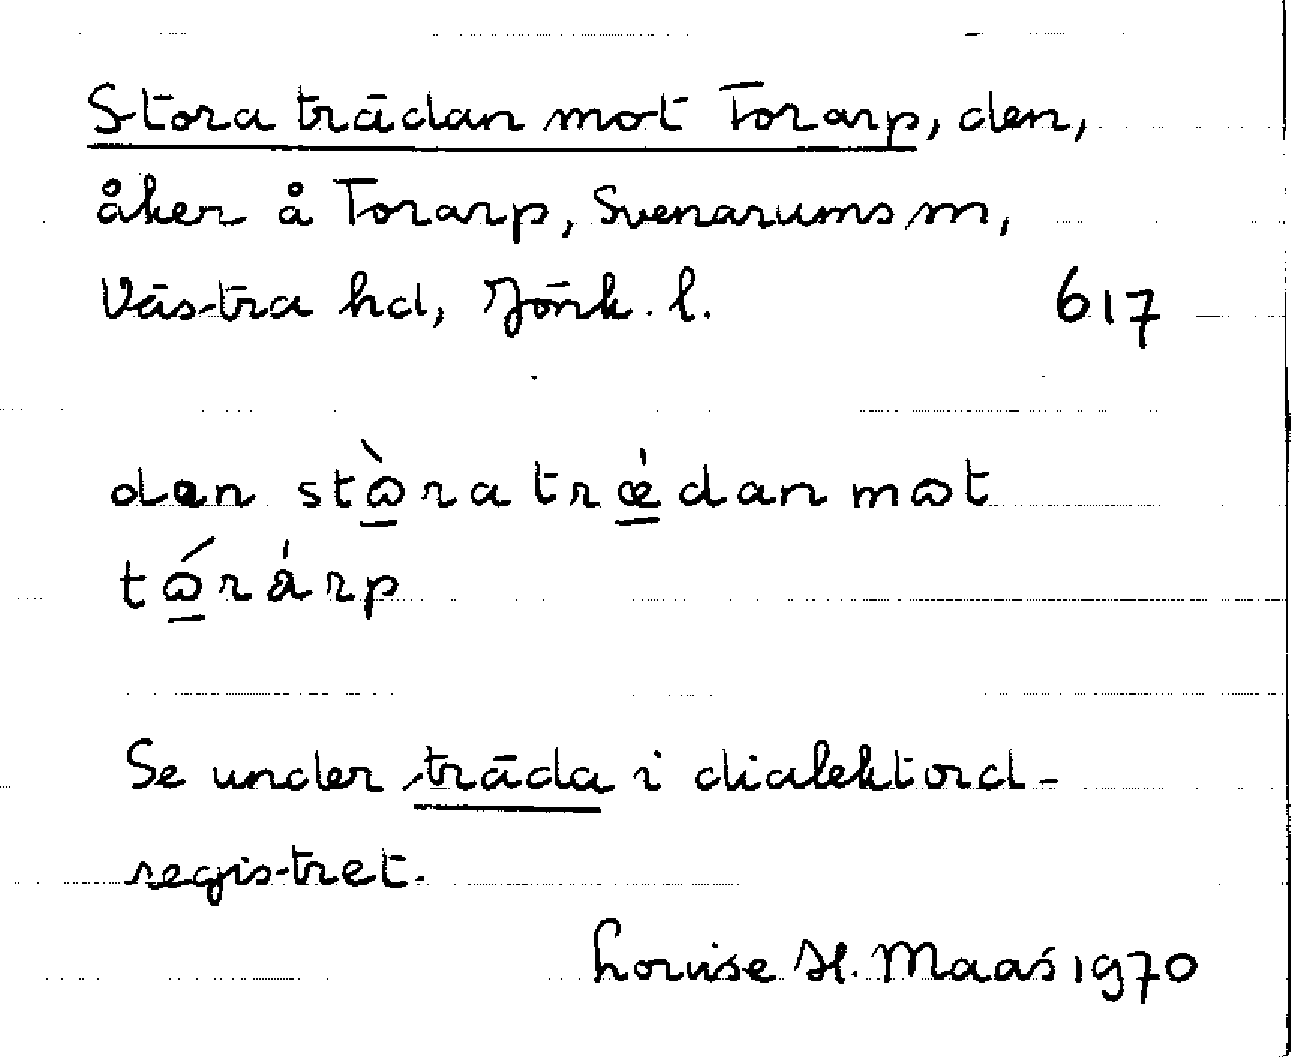 Stora trädan mot Torarp, den,
åker å Torarp, Svenarums sn,
Västra hd, Jönk. l. 617
den stɷ̀ra træ̍dan mɷt
tɷ́ra̍rp
Se under träda i dialektord-
registret.
Louise H. Maas 1970